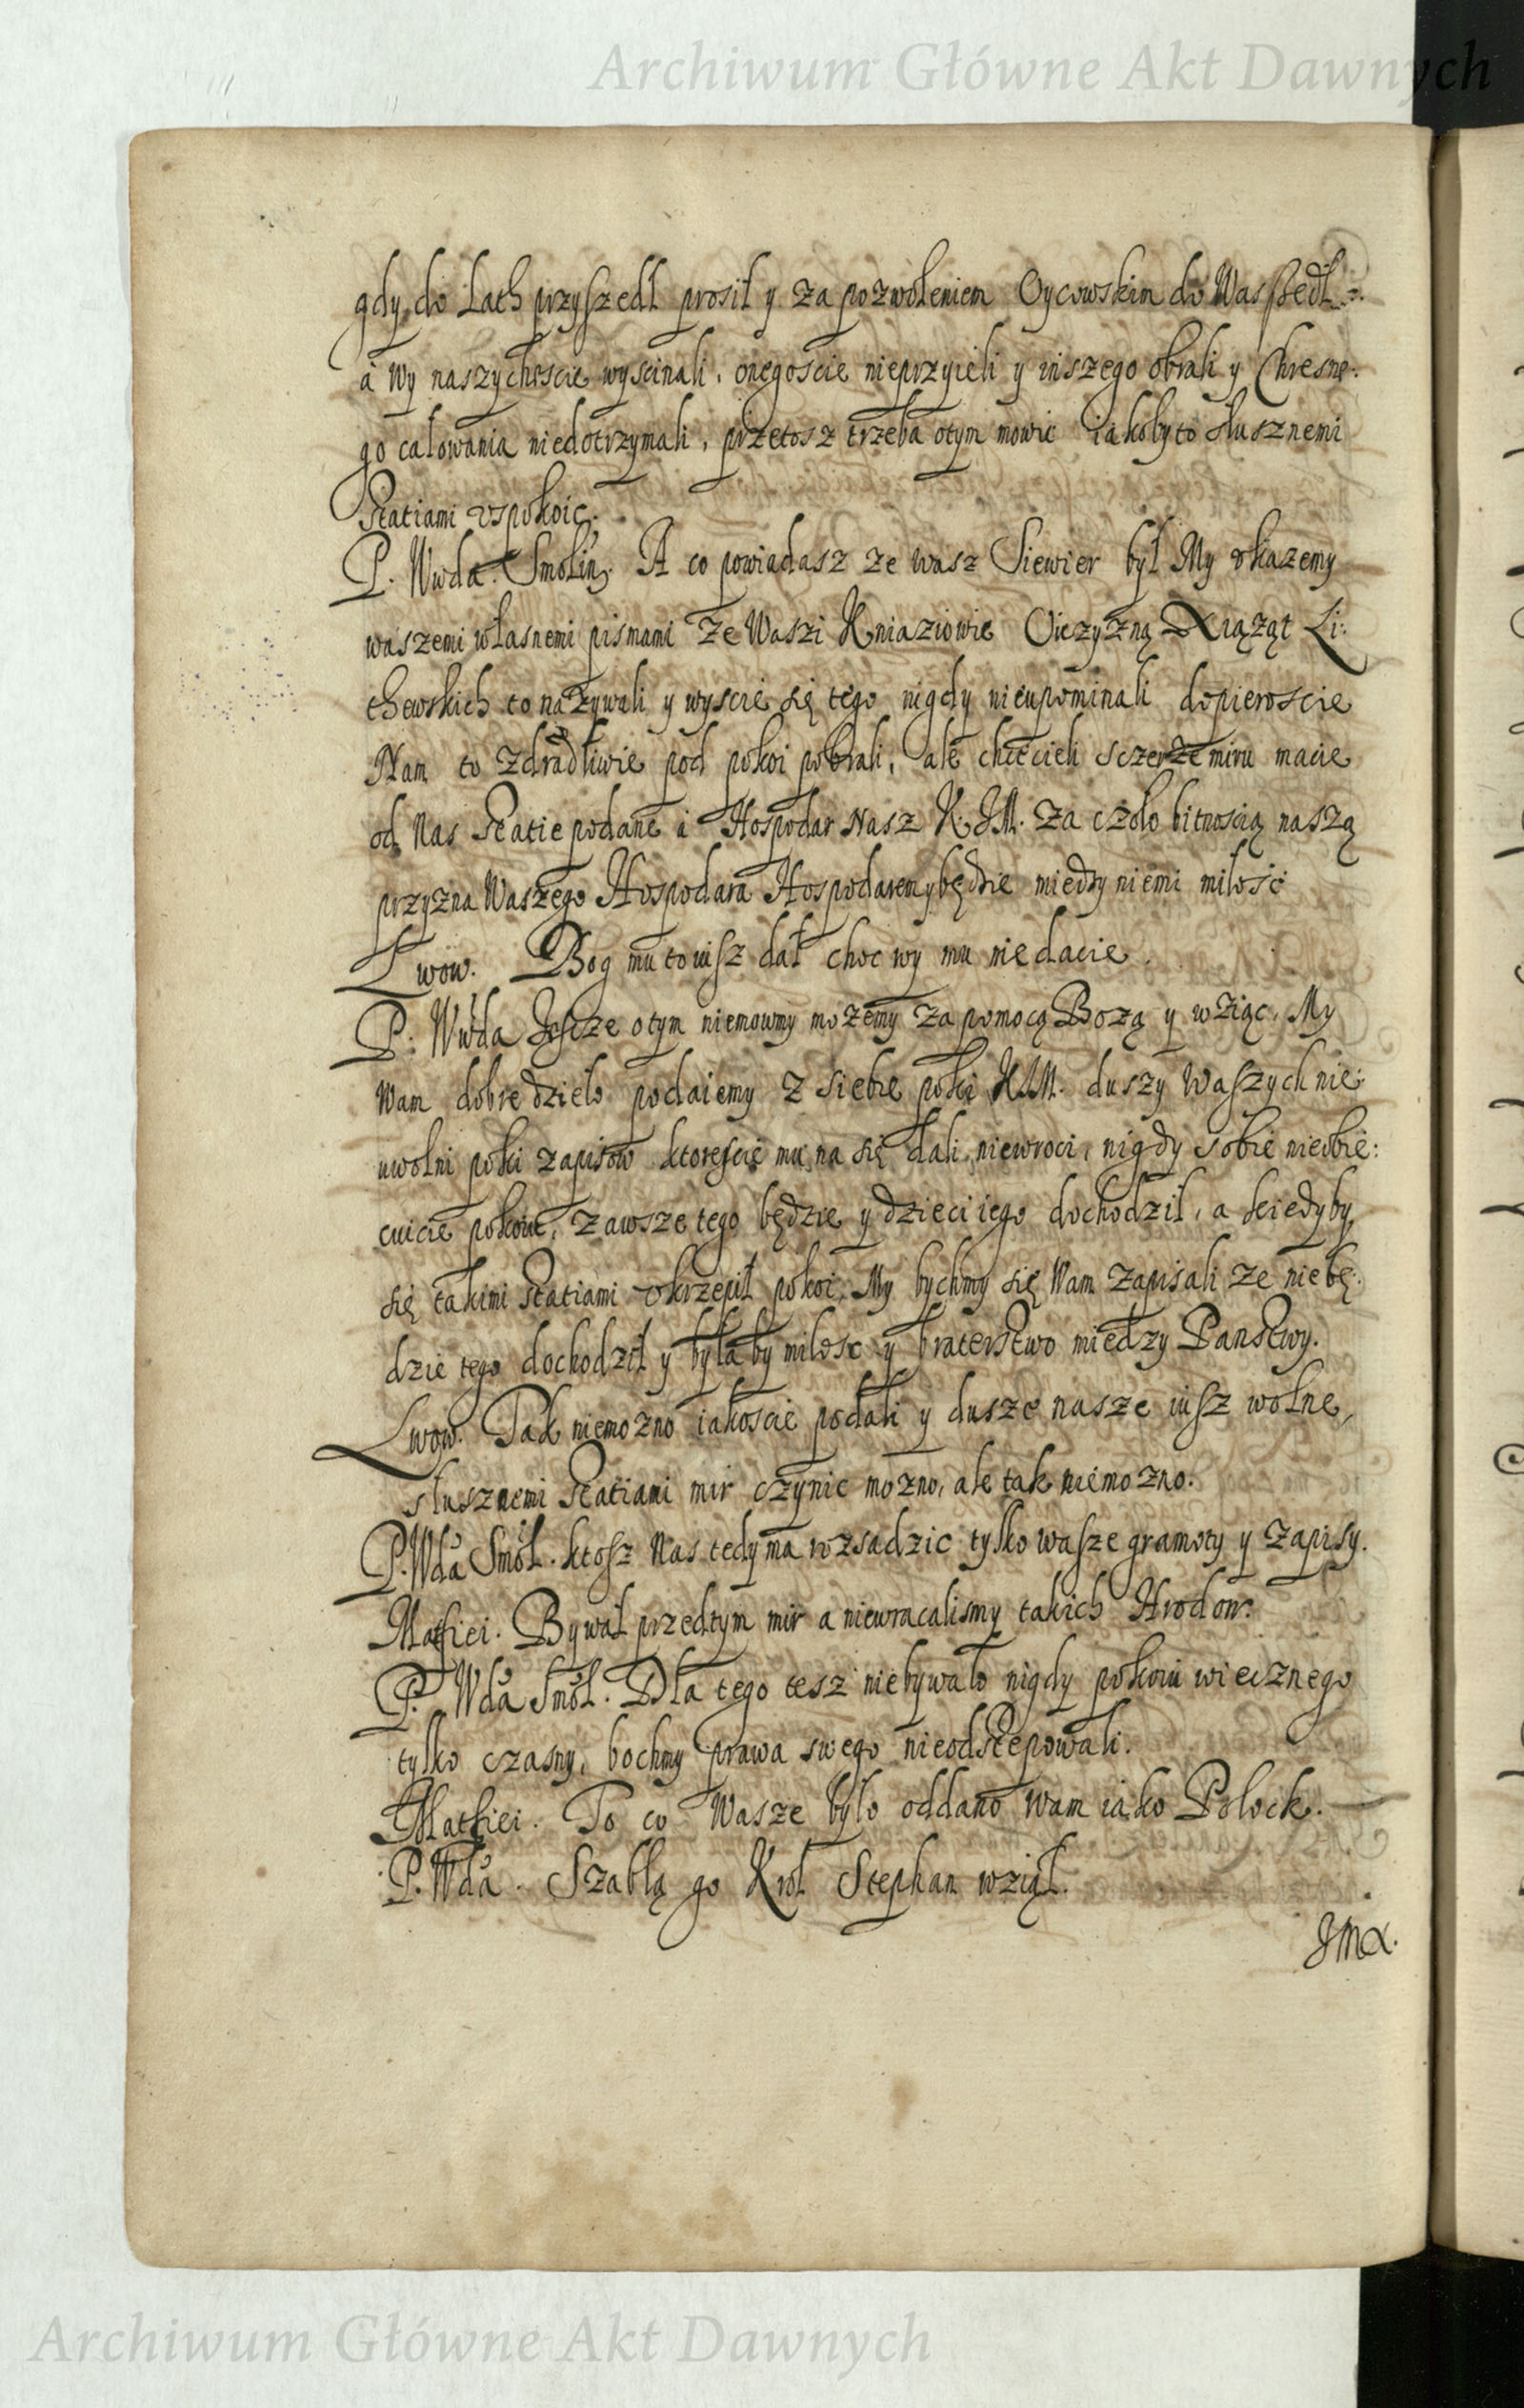 Archiwum Główne Akt Dawnych
gdy do Lath przyszedł prosił y za pozwoleniem Oycowskim do Was szedł
a Wy naszychżście wyscinali, onegoście nieprzyieli y inszego obrali y Chresne:
go całowania niedotrzymali, przetosz trzeba otym mowic iakoby to słusznemi
statiami uspokoic.
P. Wwda. Smolin. A co powiadasz ze wasz Siewier był My okazemy
waszemi własnemi pismami że Waszi Kniaziowie Oiczyzną Xiążąt Li:
thewskich to nazywali y wyscie się tego nigdy nieupominali dopieroscie
Nam to zdradliwie pod pokoi pobrali, ale chcecieli sczerze miru macie
od Nas statie podane i Hospodar Nasz K.J.M. za czołobitnoscią naszą
przyzna Waszego Hospodara Hospodarem y będzie miedzy niemi miłość
Lwow. Bog mu to iusz dał choc wy mu niedacie.
P. Wwda Jescze otym niemowmy możemy za pomocą Bozą y wziąc. My
Wam dobre dzieło podaiemy z siebie poki K.J.M. duszy Waszych nie:
uwolni poki zapisow ktoreście mu na się dali niewroci, nigdy sobie nieobie:
cuicie pokoiu, zawsze tego będzie y dzieci iego dochodził, a kiedyby
się takimi statiami okrzepił pokoi, My bychmy się Wam zapisali ze niebę:
dzie tego dochodził y byłaby miłosc y braterstwo miedzy Panstwy.
Lwow. Tak niemozno iakoscie podali y dusze nasze iusz wolne,
słusznemi statiami mir czynic mozno, ale tak niemozno.
P. Wda Smol. ktosz Nas tedy ma rozsadzic tylko wasze gramoty y zapisy.
Matfiei. Bywał przedtym mir a niewracalismy takich Hrodow.
P. Wda Smol. Dla tego tesz niebywało nigdy pokoiu wiecznego
tylko czasny, bochmy prawa swego nieodstepowali.
Matfiei. To co Wasze było oddano wam iako Połock.
P. Wda. Szablą go Krol Stephan wziął.
Archiwum Główne Akt Dawnych